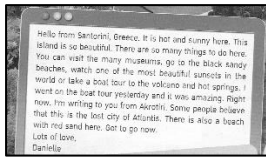 Hello from Santorini, Greece. It is hot and sunny here. This
island is so beautiful. There are so many things to do here.
You can visit the many museums, go to the black sandy
beaches, watch one of the most beautiful sunsets in the
world or take a boat tour to the volcano and hot springs. I
went on the boat tour yesterday and it was amazing. Right
now, I'm writing to you from Akrotiri. Some people believe
that this is the lost city of Atlantis. There is also a beach
with red sand here. Got to go now.
Lots of love,
Danielle